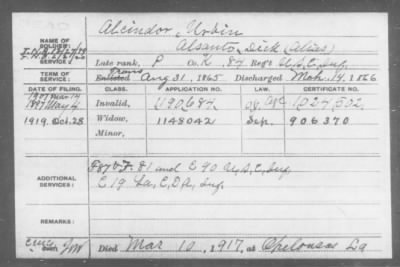 NAME OF SOLDIER:
Alcindor, Urbin
Alsanto, Dick (alias)
SERVICE:
Late rank, P Co. K, 84 Reg't U.S.C. Inf.
TERM OF SERVICE:
Enlisted Aug 31, 1865 Discharged Mch. 14, 1866
DATE OF FILING. CLASS. APPLICATION NO. LAW. CERTIFICATE NO.
1907 Mar 14
1897 May 4 Invalid, 1190684 Age 1024302
1919 Oct. 28 Widow, 1148042 Sep. 906370
Minor,
ADDITIONAL SERVICES:
F 87 & F. 81 and C 90 U.S.C. Inf.
C. 19 La. C. D. A. Inf.
REMARKS:
Died Mar 10, 1917, at Opelousas La